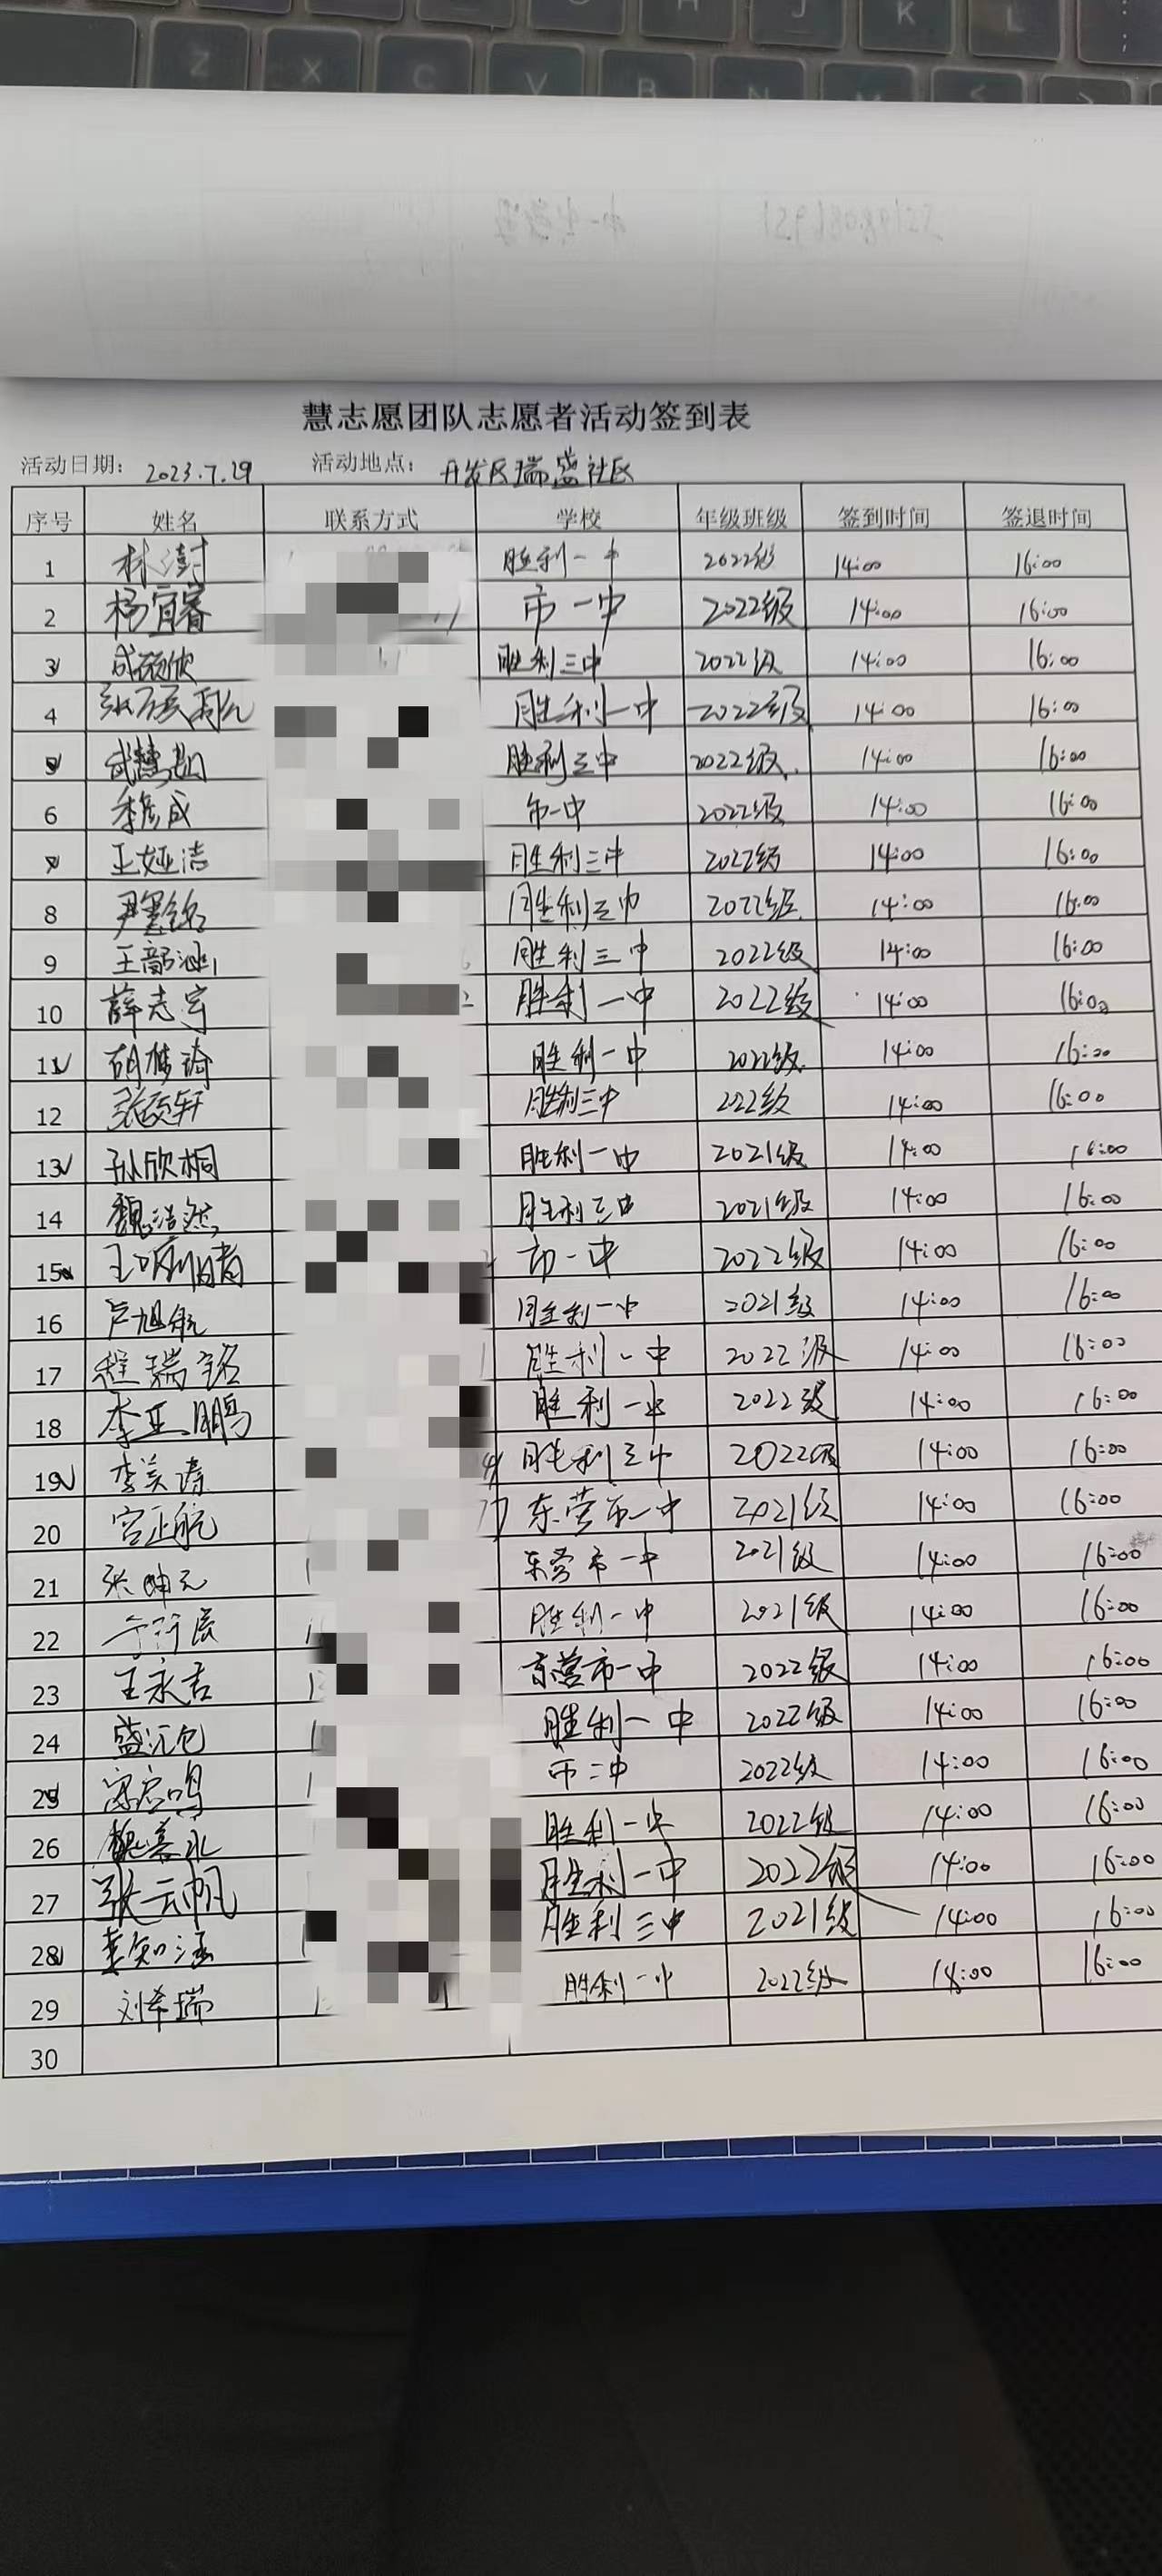 慧志愿团队志愿者活动签到表
活动日期： 2023.7.19 活动地点： 开发区瑞盛社区
序号 姓名 联系方式 学校 年级班级 签到时间 签退时间
1 林澍 胜利一中 2022级 14:00 16:00
2 杨宜睿 市一中 2022级 14:00 16:00
3 成硕欣 胜利三中 2022级 14:00 16:00
4 胜利一中 2022级 14:00 16:00
5 胜利三中 2022级 14:00 16:00
6 季彦成 市一中 2022级 14:00 16:00
7 王娅洁 胜利三中 2022级 14:00 16:00
8 尹墨铭 胜利三中 2022级 14:00 16:00
9 王韶涵 胜利三中 2022级 14:00 16:00
10 薛志宇 胜利一中 2022级 14:00 16:00
11 胡梦琦 胜利一中 2022级 14:00 16:00
12 张硕轩 胜利三中 2022级 14:00 16:00
13 孙欣桐 胜利一中 2021级 14:00 16:00
14 魏浩然 胜利三中 2021级 14:00 16:00
15 市一中 2022级 14:00 16:00
16 卢旭航 胜利一中 2021级 14:00 16:00
17 程瑞铭 胜利一中 2022级 14:00 16:00
18 李亚鹏 胜利一中 2022级 14:00 16:00
19 李美涛 胜利三中 2022级 14:00 16:00
20 宫正航 东营市一中 2021级 14:00 16:00
21 张坤元 东营市一中 2021级 14:00 16:00
22 胜利一中 2021级 14:00 16:00
23 王永吉 东营市一中 2022级 14:00 16:00
24 胜利一中 2022级 14:00 16:00
25 宋启鸣 市二中 2022级 14:00 16:00
26 胜利一中 2022级 14:00 16:00
27 张云帆 胜利一中 2022级 14:00 16:00
28 胜利三中 2021级 14:00 16:00
29 刘希瑞 胜利一中 2022级 14:00 16:00
30